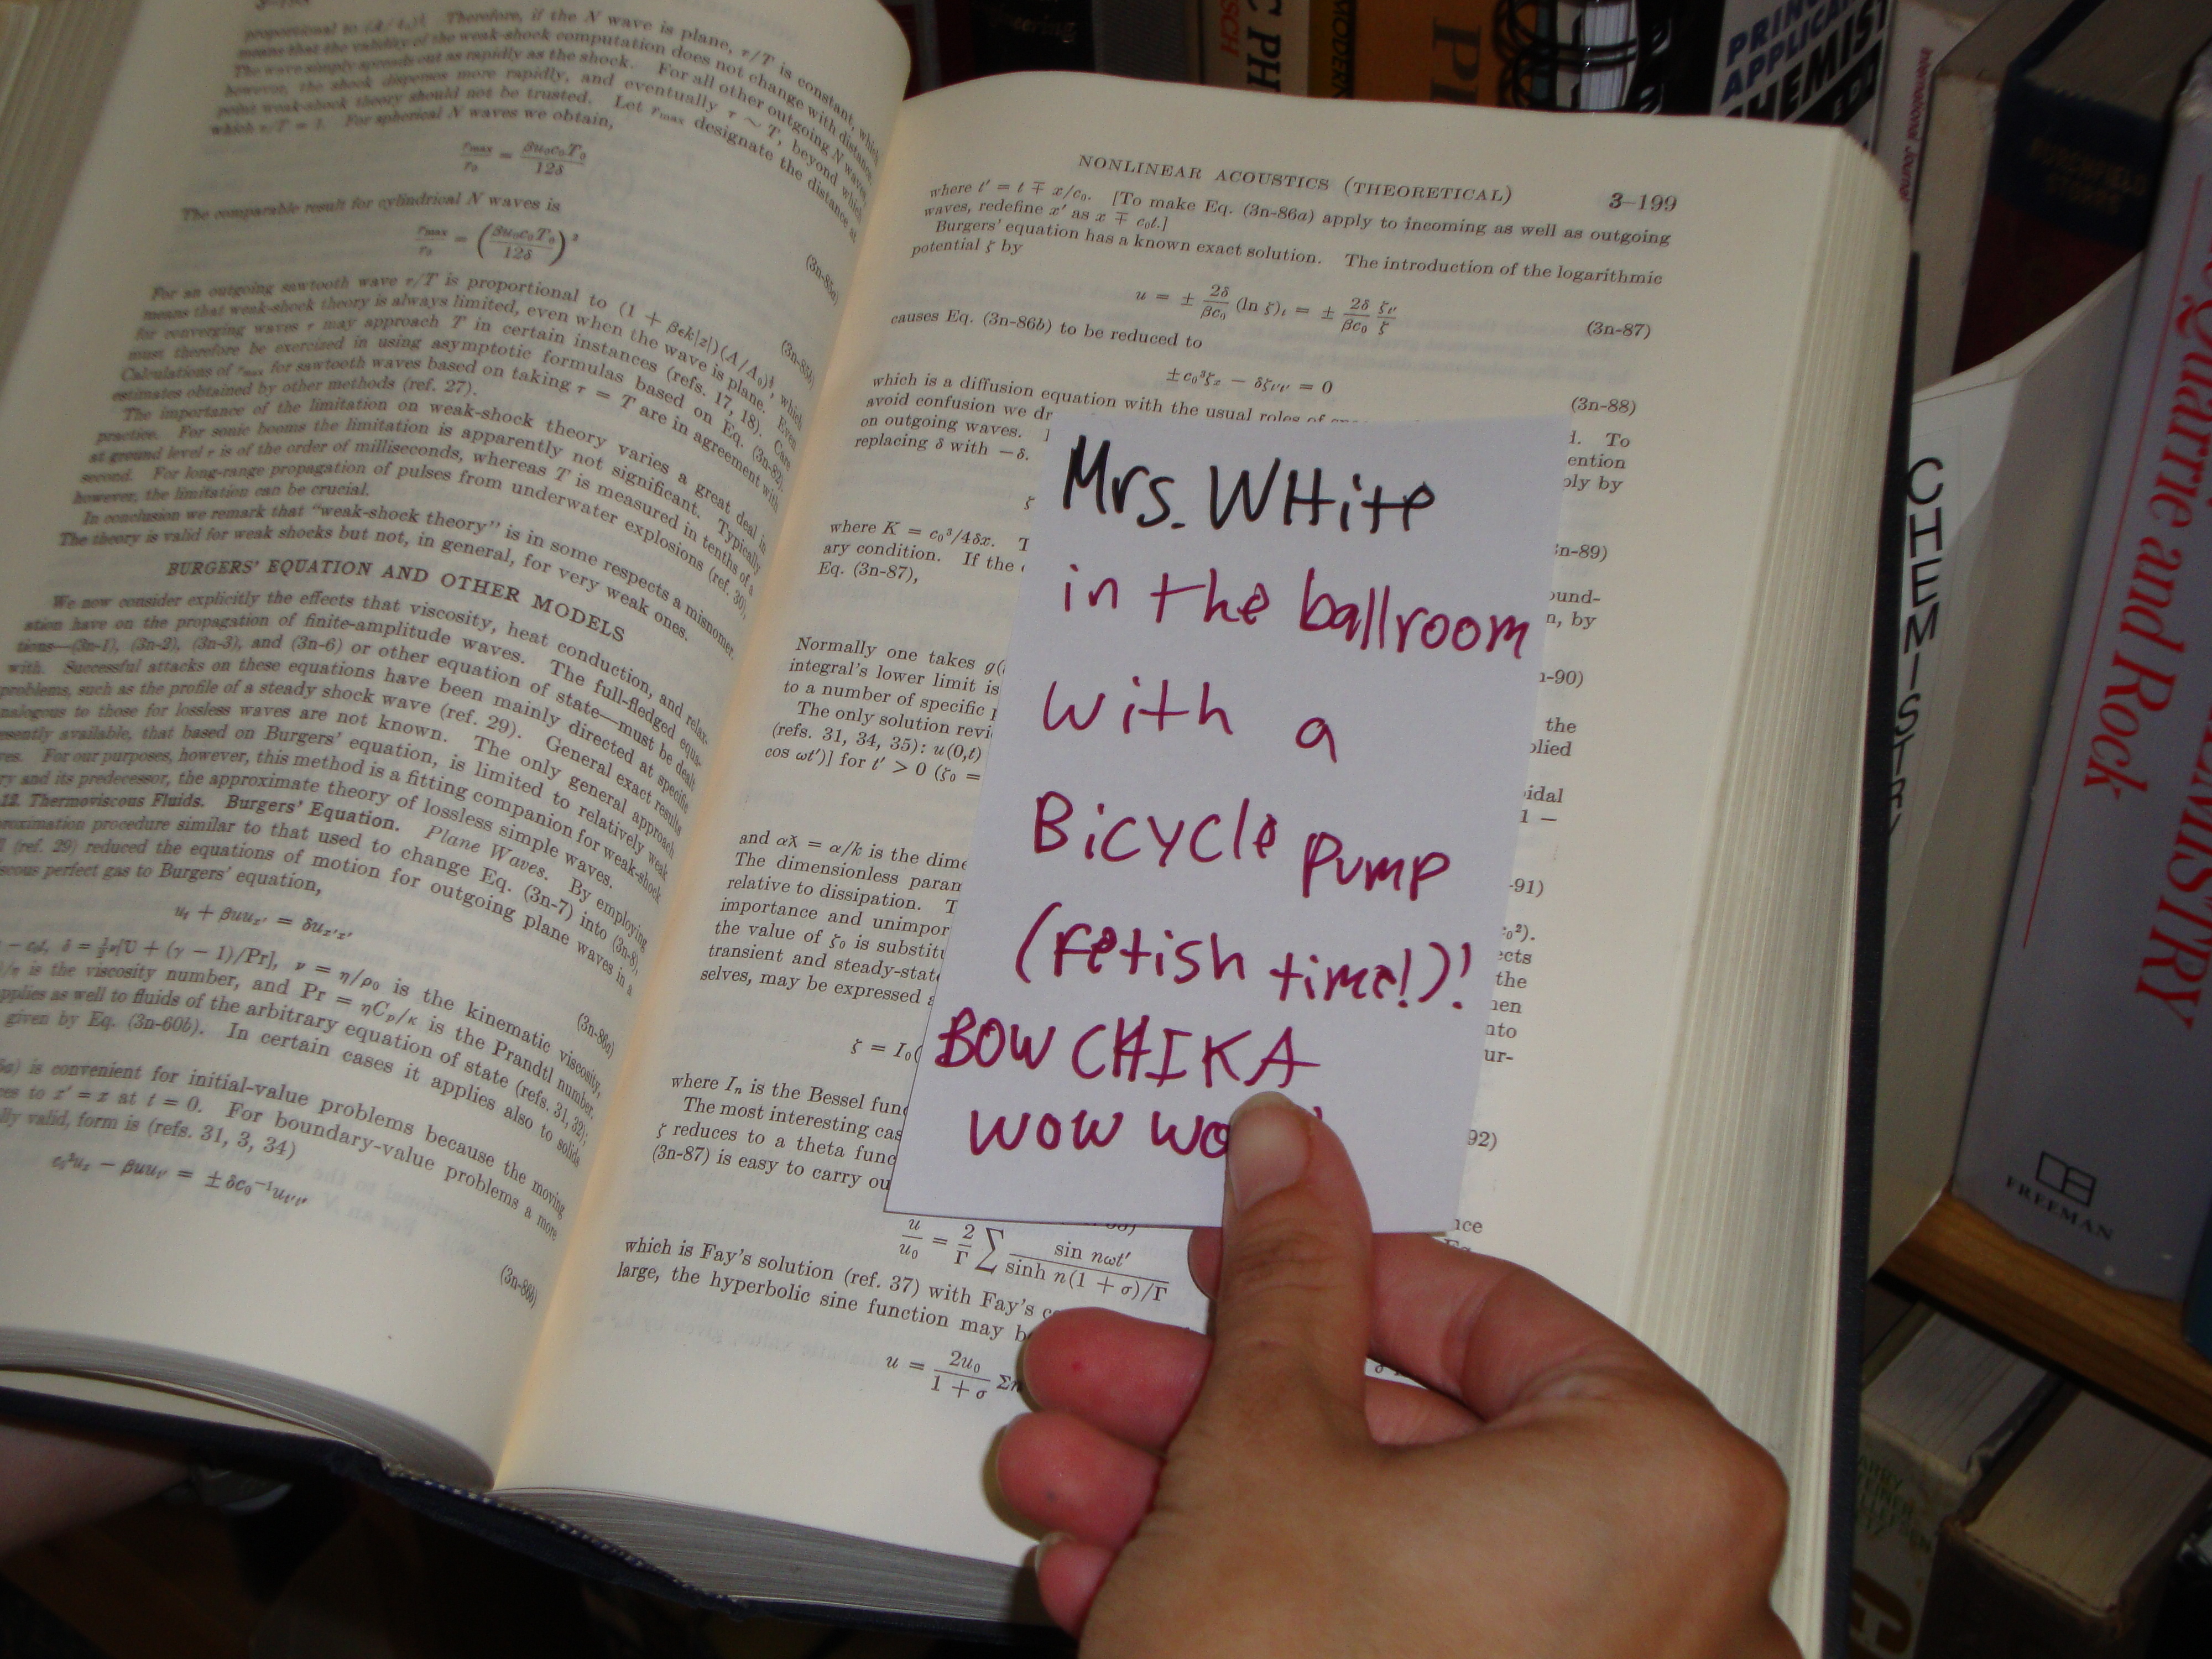 proportional to
Therefore, if the N wave is plane, τ/T is constant, which
means that the validity of the weak-shock computation does not change with distance.
The wave simply spreads out as rapidly as the shock. For all other outgoing N waves,
however, the shock disperses more rapidly, and eventually τ ∼ T, beyond which
point weak-shock theory should not be trusted. Let rmax designate the distance at
which τ/T = 1. For spherical N waves we obtain,
rmax/r0 = βu0c0T0/12δ
(3n-85a)
The comparable result for cylindrical N waves is
rmax/r0 = (βu0c0T0/12δ)²
(3n-85b)
For an outgoing sawtooth wave τ/T is proportional to (1 + βεk|z|)(A/A0)½, which
means that weak-shock theory is always limited, even when the wave is plane. Even
for converging waves τ may approach T in certain instances (refs. 17, 18). Care
must therefore be exercized in using asymptotic formulas based on Eq. (3n-82).
Calculations of rmax for sawtooth waves based on taking τ = T are in agreement with
estimates obtained by other methods (ref. 27).
The importance of the limitation on weak-shock theory varies a great deal in
practice. For sonic booms the limitation is apparently not significant. Typically
at ground level τ is of the order of milliseconds, whereas T is measured in tenths of a
second. For long-range propagation of pulses from underwater explosions (ref. 30),
however, the limitation can be crucial.
In conclusion we remark that "weak-shock theory" is in some respects a misnomer.
The theory is valid for weak shocks but not, in general, for very weak ones.
BURGERS' EQUATION AND OTHER MODELS
We now consider explicitly the effects that viscosity, heat conduction, and relax-
ation have on the propagation of finite-amplitude waves. The full-fledged equa-
tions—(3n-1), (3n-2), (3n-3), and (3n-6) or other equation of state—must be dealt
with. Successful attacks on these equations have been mainly directed at specific
problems, such as the profile of a steady shock wave (ref. 29). General exact results
nalogous to those for lossless waves are not known. The only general approach
esently available, that based on Burgers' equation, is limited to relatively weak
res. For our purposes, however, this method is a fitting companion for weak-shock
ry and its predecessor, the approximate theory of lossless simple waves.
12. Thermoviscous Fluids. Burgers' Equation. Plane Waves. By employing
roximation procedure similar to that used to change Eq. (3n-7) into (3n-8),
l (ref. 29) reduced the equations of motion for outgoing plane waves in a
scous perfect gas to Burgers' equation,
ut + βuux' = δux'x'
(3n-86a)
− c0t, δ = ½ν[U + (γ − 1)/Pr], ν = η/ρ0 is the kinematic viscosity,
/η is the viscosity number, and Pr = ηCp/κ is the Prandtl number.
pplies as well to fluids of the arbitrary equation of state (refs. 31, 32);
given by Eq. (3n-60b). In certain cases it applies also to solids
6a) is convenient for initial-value problems because the moving
ces to x' = x at t = 0. For boundary-value problems a more
lly valid, form is (refs. 31, 3, 34)
c0²ux − βuut' = ±δc0⁻¹ut't'
(3n-86b)
NONLINEAR ACOUSTICS (THEORETICAL) 3–199
where t' = t ∓ x/c0. [To make Eq. (3n-86a) apply to incoming as well as outgoing
waves, redefine x' as x ∓ c0t.]
Burgers' equation has a known exact solution. The introduction of the logarithmic
potential ζ by
u = ± 2δ/βc0 (ln ζ)t = ± 2δ/βc0 ζt'/ζ (3n-87)
causes Eq. (3n-86b) to be reduced to
±c0³ζx − δζt't' = 0 (3n-88)
which is a diffusion equation with the usual roles of
d. To
avoid confusion we dr
ention
on outgoing waves.
ply by
replacing δ with −δ.
ζ
3n-89)
where K = c0³/4δx. T
ound-
ary condition. If the
n, by
Eq. (3n-87),
n-90)
Normally one takes g(
the
integral's lower limit is
plied
to a number of specific p
The only solution revi
idal
(refs. 31, 34, 35): u(0,t)
1 −
cos ωt')] for t' > 0 (ζ0 =
-91)
and αƛ = α/k is the dime
The dimensionless param
relative to dissipation. T
ects
importance and unimpor
the
the value of ζ0 is substitu
hen
transient and steady-state
nto
selves, may be expressed a
ur-
ζ = I0(
92)
where In is the Bessel func
The most interesting cas
ζ reduces to a theta func
(3n-87) is easy to carry ou
nce
u/u0 = 2/Γ Σ sin nωt'/sinh n(1 + σ)/Γ
which is Fay's solution (ref. 37) with Fay's c
large, the hyperbolic sine function may b
u = 2u0/1 + σ Σn
Mrs. WHite
in the ballroom
with a
Bicycle Pump
(fetish time!)!
BOW CHIKA
WOW WO
SCH
C PH
MODERN
PRIN
APPLICA
CHEMIST
ED
International Journe
CHEMISTR
Quarrie and Rock
EMISTRY
FREEMAN